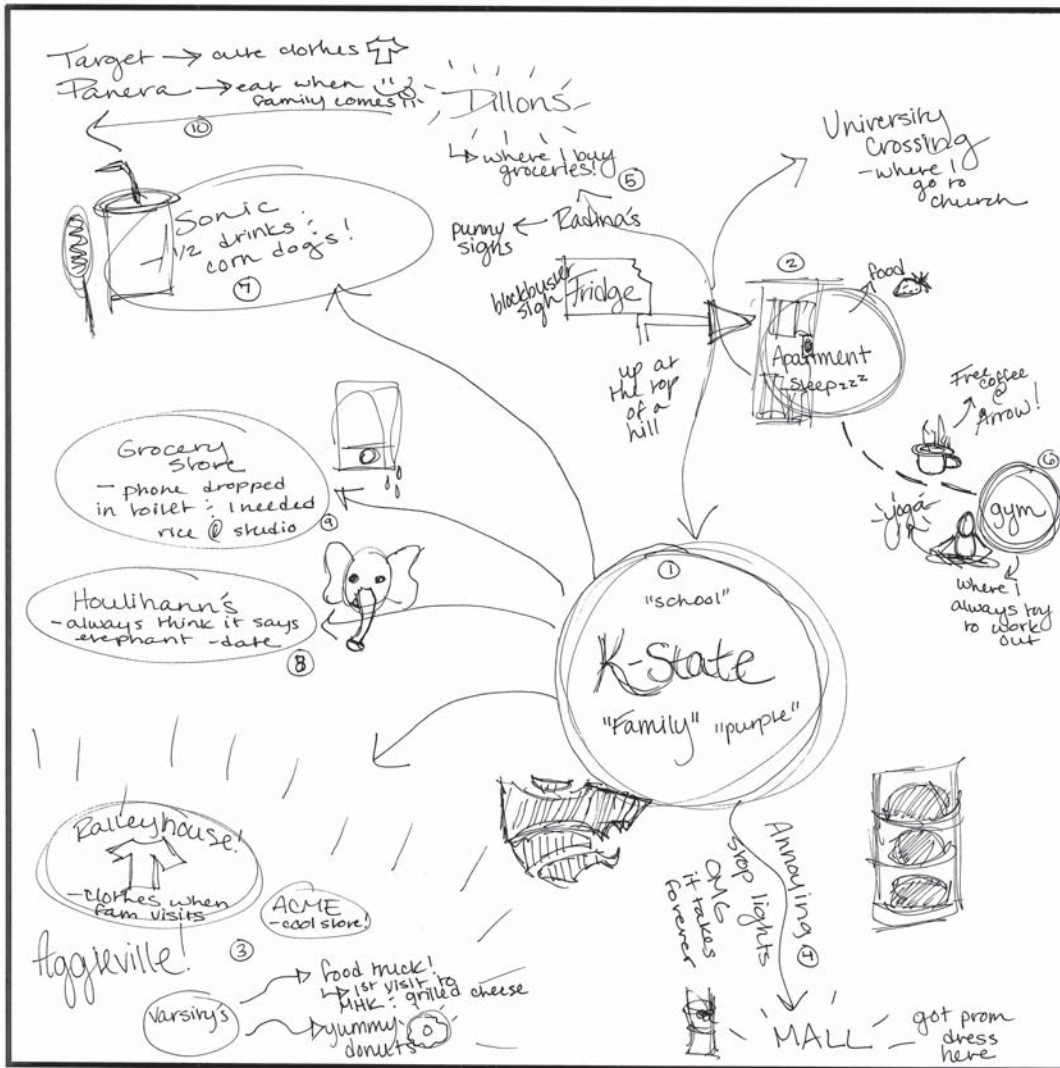 Target → cute clothes
Panera → eat when
family comes!!
10
Dillons
↳ where I buy
groceries!
5
Radina's
punny
signs
University
Crossing
- where I
go to
church
Sonic
1/2 drinks :
corn dogs!
7
blockbuster
sign
Fridge
up at
the top
of a
hill
2
food
Apartment
sleep zzz
Free
coffee
@
Arrow!
6
gym
yoga
where I
always try
to work
out
Grocery
store
- phone dropped
in toilet : I needed
rice @ studio
9
Houlihann's
- always think it says
elephant - date
8
1
"school"
K-State
"Family" "purple"
Ralleyhouse!
- clothes when
fam visits
ACME
- cool store!
Aggieville!
3
Varsity's
food truck!
↳ 1st visit to
MHK : grilled cheese
yummy
donuts
Annoying
stop lights
OMG
it takes
forever
4
MALL
got prom
dress
here